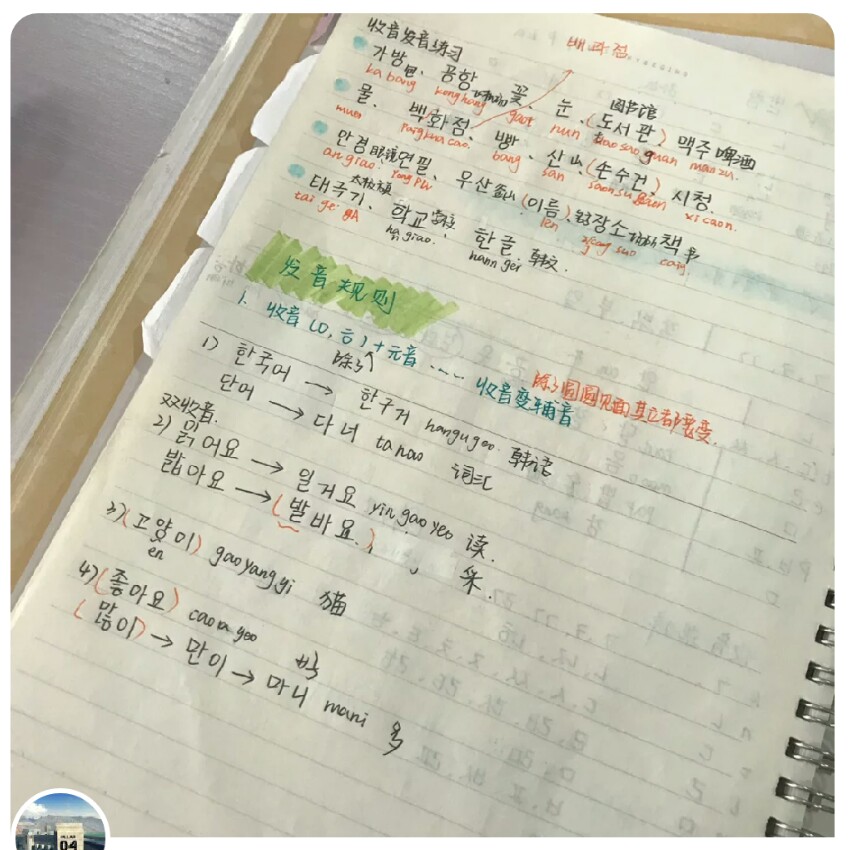 收音发音练习
배콰점
가방 包、공항、꽃、눈、(도서관) 图书馆 맥주 啤酒
ka bang kong hang gaot nun
물、백화점、빵、산 山、(손수건)、시청.
mur bang san xi caon.
안경 眼镜 연필、우산 伞 (이름)、장소 책 书
an giao. yong piu len zang suo
태극기、학교 学校、한글 韩文.
tai ge gi hann ger
发音规则
1. 收音 (ㅇ, ㅎ) + 元音 .... 收音变辅音
除了 除了圆圆见面其它都要变.
1) 한국어 → 한구거 hangugeo 韩语
단어 → 다너 tanao 词汇
双收音.
2) 읽어요 → 일거요 yin gao yeo 读.
밟아요 → (발바요.) 采.
3) (고양이) gaoyangyi 猫
en
4) (좋아요) caoa yeo
(많이) → 만이 → 마니 mani 多
04